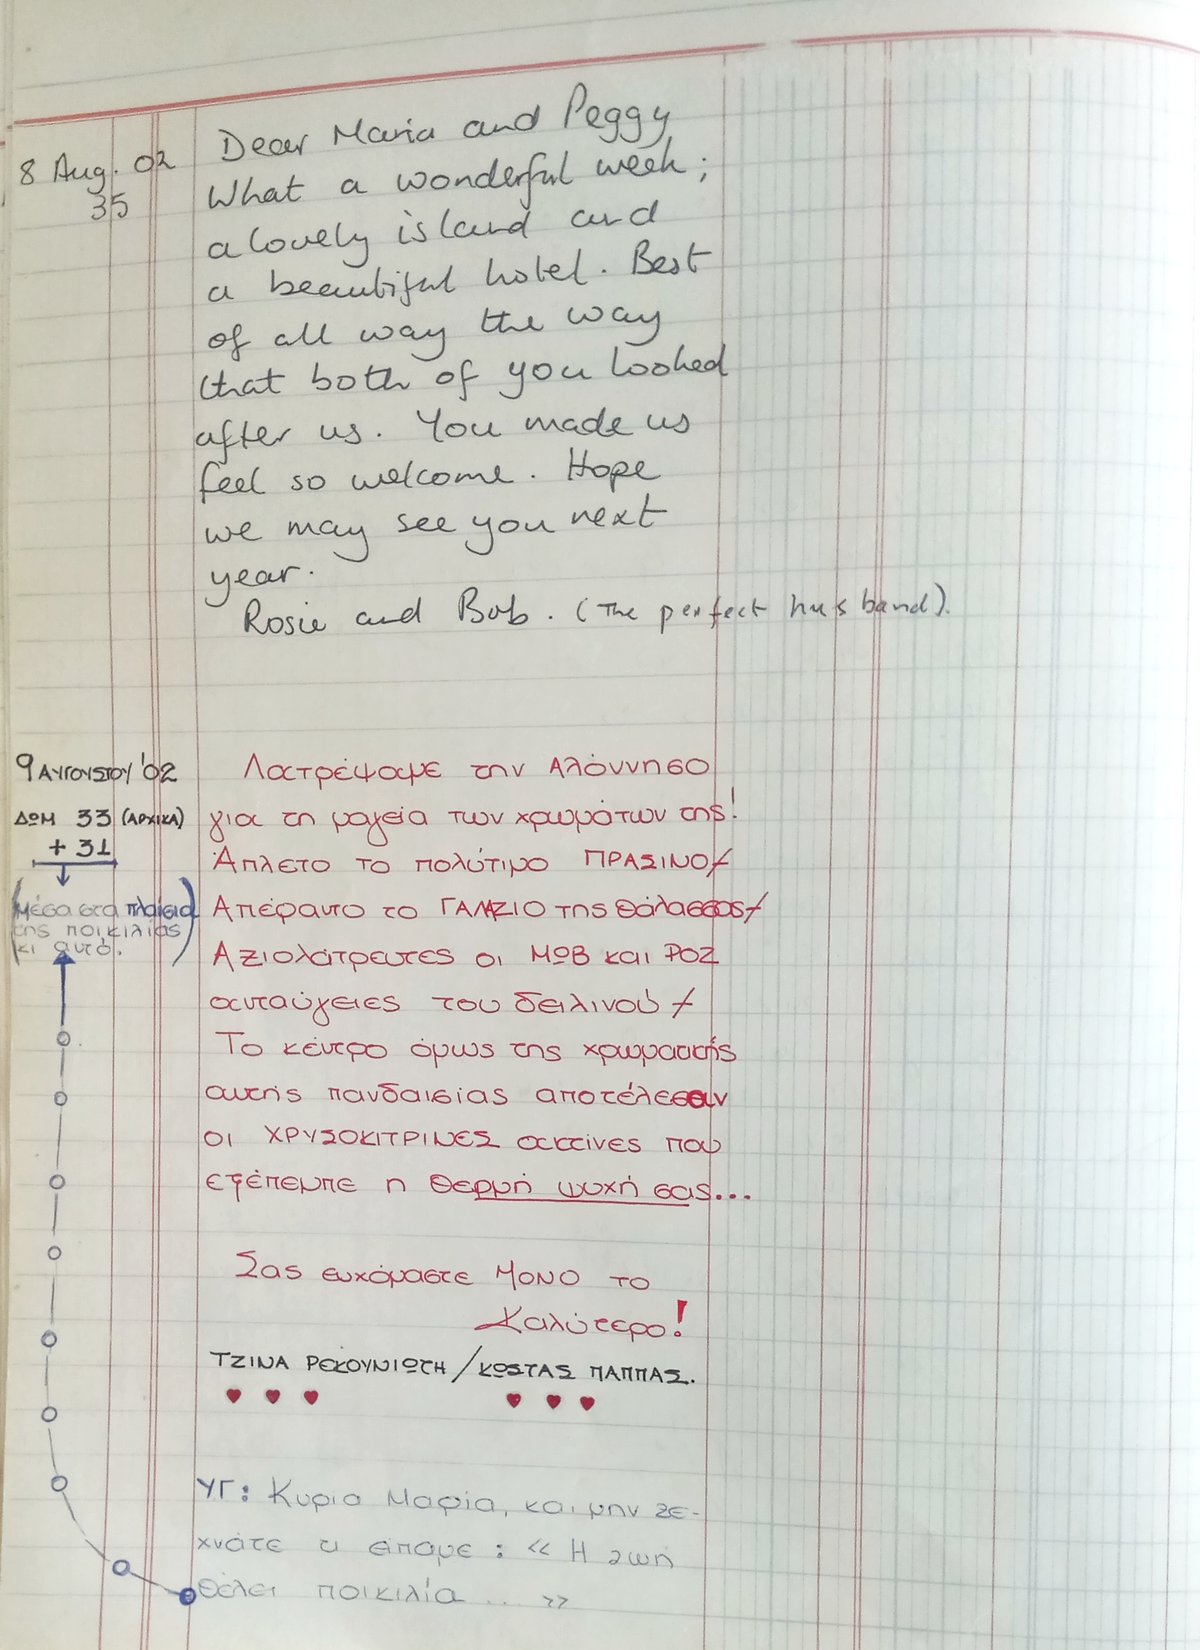 8 Aug. 02
35
Dear Maria and Peggy
What a wonderful week;
a lovely island and
a beautiful hotel. Best
of all way the way
that both of you looked
after us. You made us
feel so welcome. Hope
we may see you next
year.
Rosie and Bob. (The perfect husband).
9 ΑΥΓΟΥΣΤΟΥ '02
ΔΩΜ 33 (ΑΡΧΙΚΑ)
+ 31
(Μέσα στα πλαίσια
της ποικιλίας
κι αυτό.)
Λατρέψαμε την Αλόννησο
για τη μαγεία των χρωμάτων της!
Άπλετο το πολύτιμο ΠΡΑΣΙΝΟ/
Απέραντο το ΓΑΛΑΖΙΟ της θάλασσας/
Αξιολάτρευτες οι ΜΩΒ και ΡΟΖ
ανταύγειες του δειλινού/
Το κέντρο όμως της χρωματικής
αυτής πανδαισίας αποτέλεσαν
οι ΧΡΥΣΟΚΙΤΡΙΝΕΣ ακτίνες που
εξέπεμπε η θερμή ψυχή σας...
Σας ευχόμαστε ΜΟΝΟ το
Καλύτερο!
ΤΖΙΝΑ ΡΕΚΟΥΝΙΩΤΗ / ΚΩΣΤΑΣ ΠΑΠΠΑΣ.
ΥΓ: Κυρία Μαρία, και μην ξε-
χνάτε τι είπαμε: « Η ζωή
θέλει ποικιλία ... »